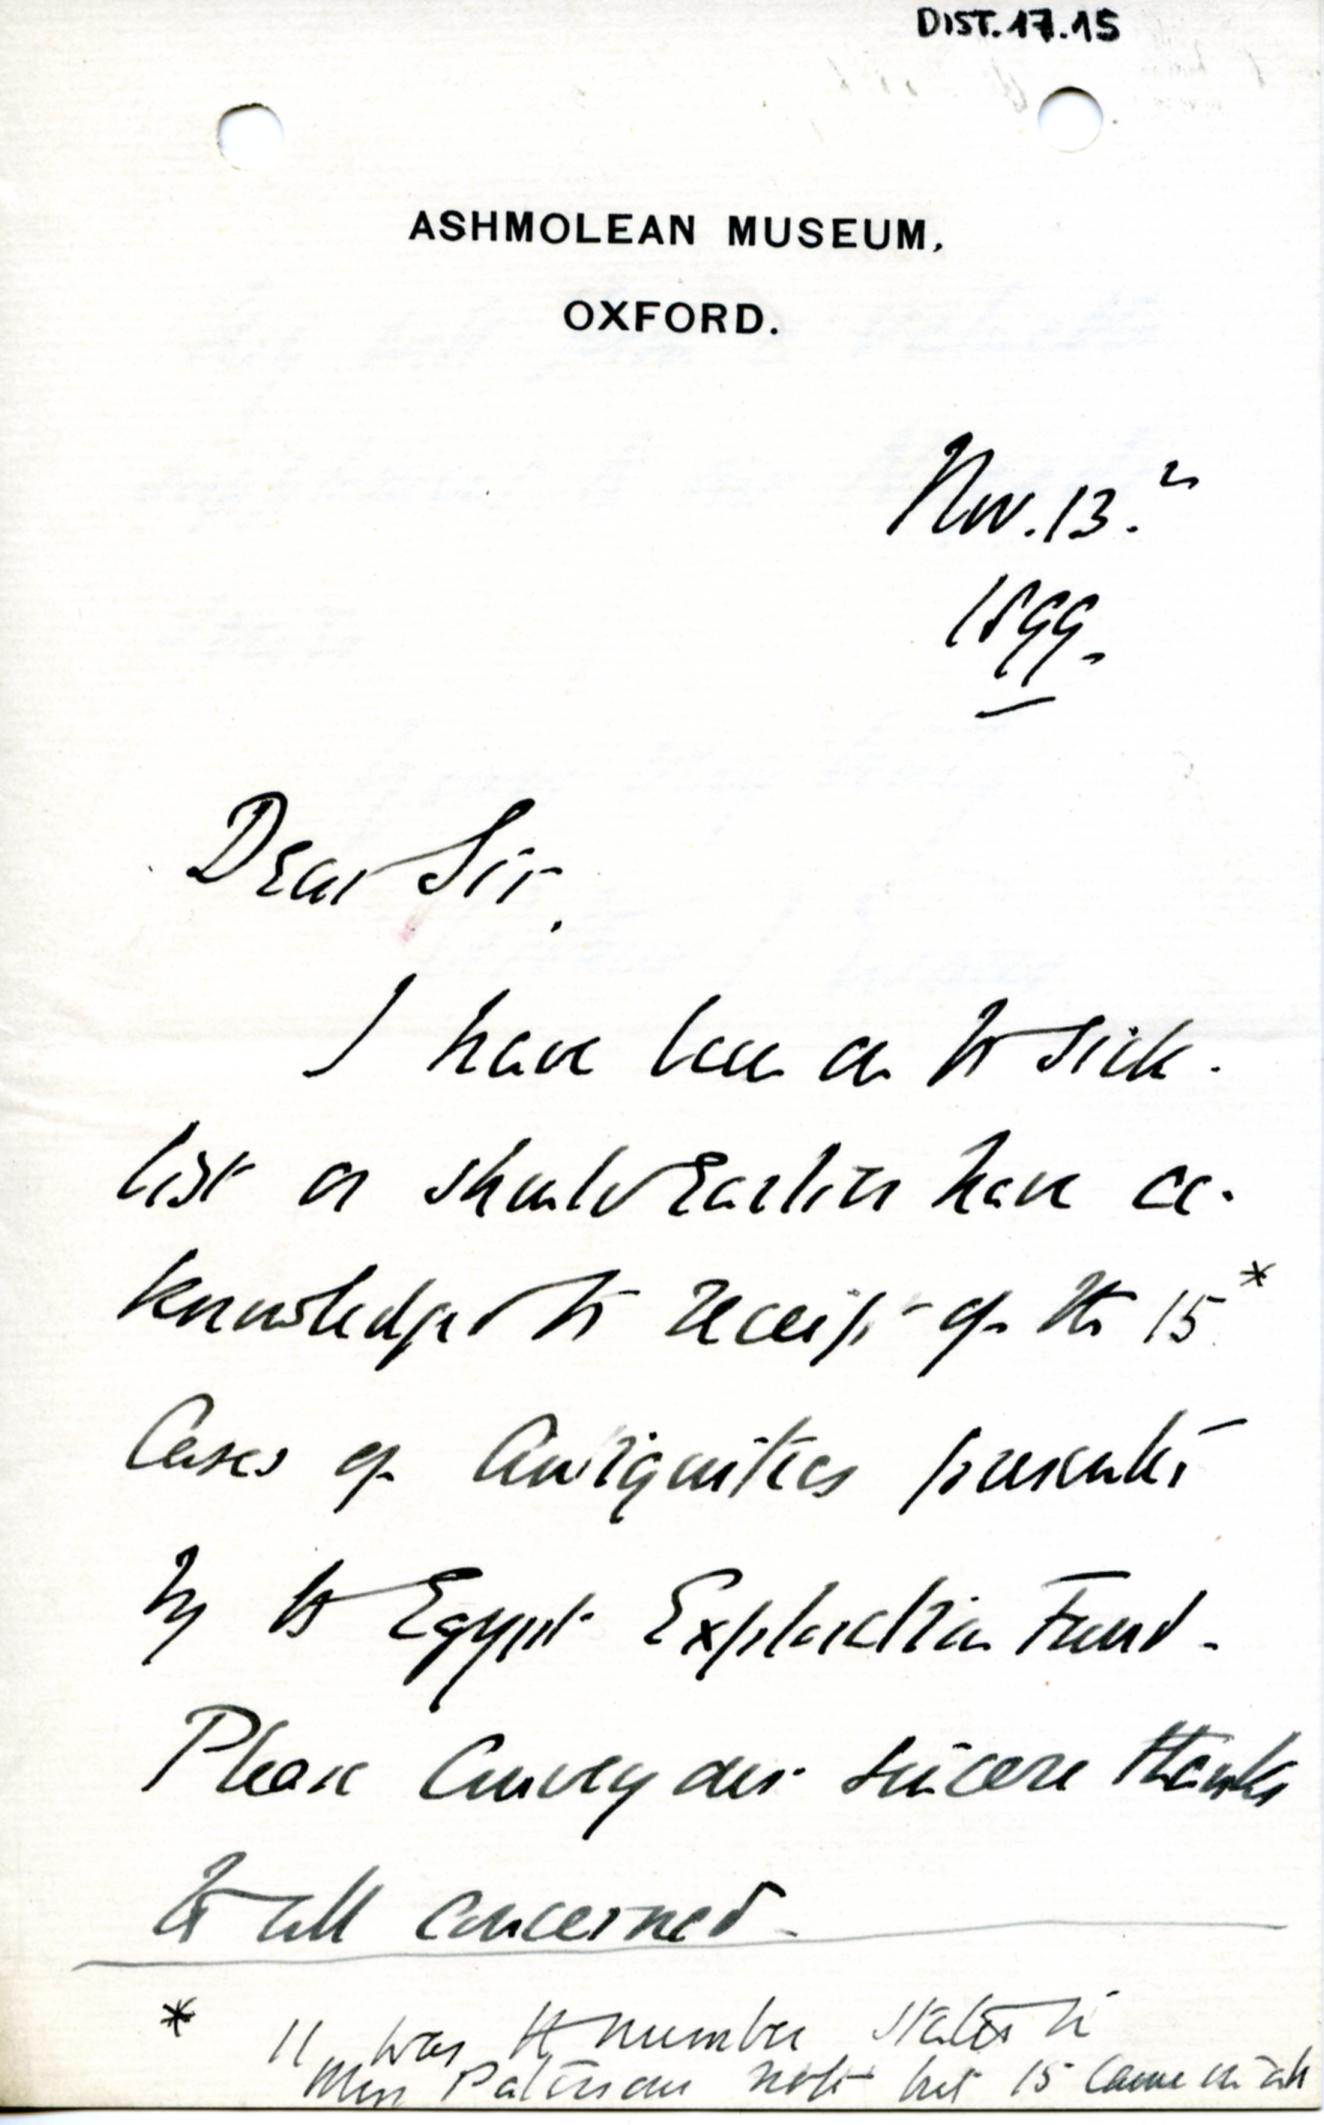 DIST.17.15
ASHMOLEAN MUSEUM,
OXFORD.
Nov. 13.
1899.
Dear Sir,
I have been on the sick-
list or should earlier have ac-
knowledged the receipt of the 15*
Cases of Antiquities presented
by the Egypt Exploration Fund.
Please convey our sincere thanks
to all concerned.
* 11 was the number stated in
Miss Paterson's note but 15 came in all